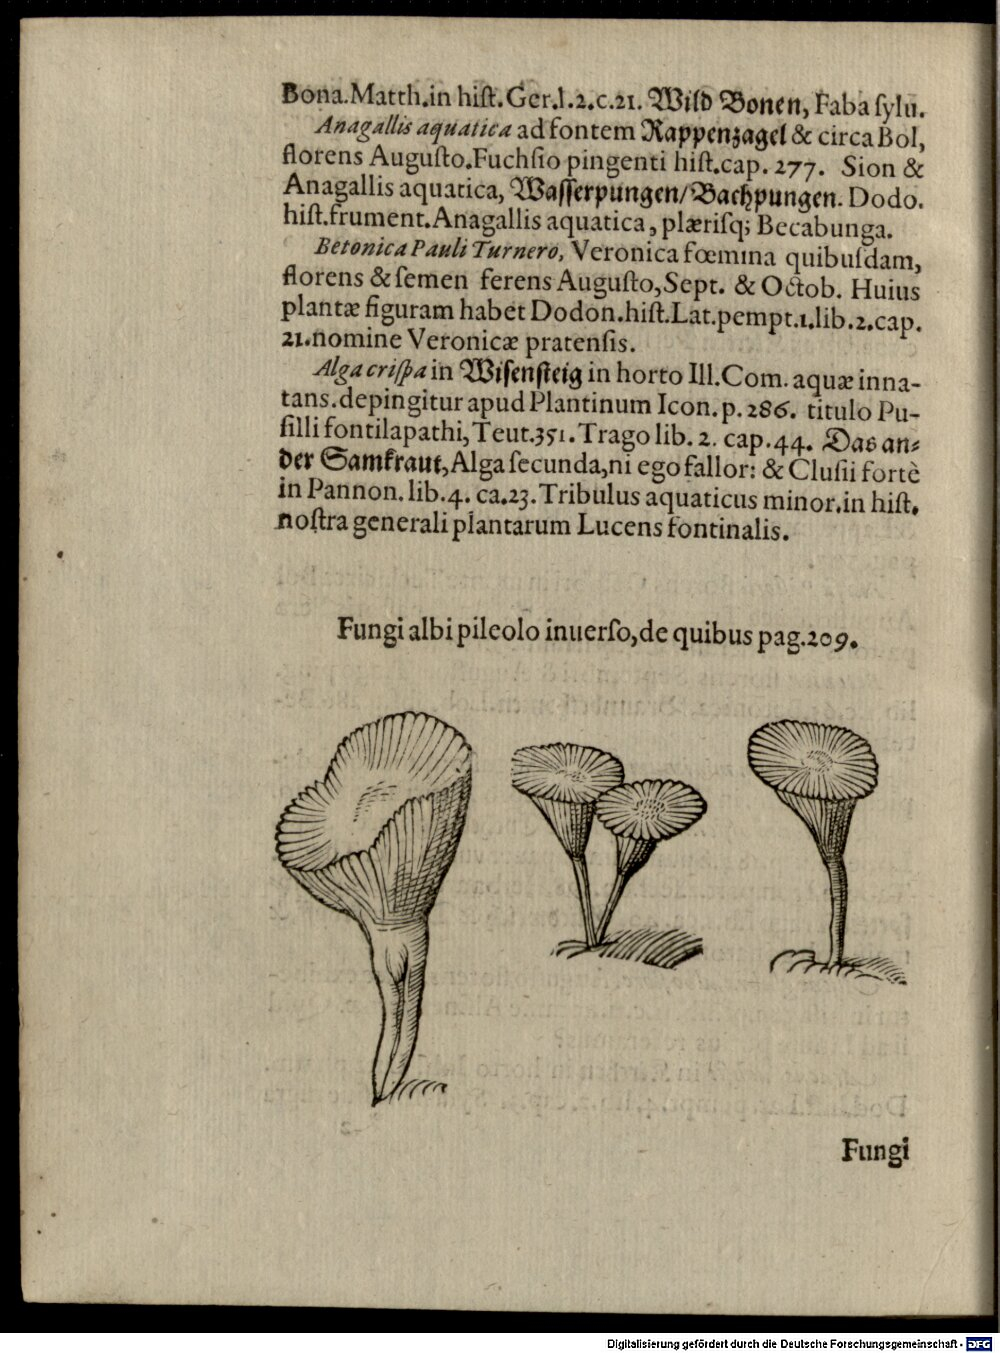 Bona.Matth.in hiſt.Ger.l.2.c.21. Wild Bonen, Faba ſylu.
Anagallis aquatica ad fontem Rappenzagel & circa Bol,
florens Auguſto.Fuchſio pingenti hiſt.cap. 277. Sion &
Anagallis aquatica, Waſſerpungen/Bachpungen. Dodo.
hiſt.frument.Anagallis aquatica, plæriſq; Becabunga.
Betonica Pauli Turnero, Veronica fœmina quibuſdam,
florens & ſemen ferens Auguſto,Sept. & Octob. Huius
plantæ figuram habet Dodon.hiſt.Lat.pempt.1.lib.2.cap.
21.nomine Veronicæ pratenſis.
Alga criſpa in Wiſenſteig in horto Ill.Com. aquæ inna-
tans.depingitur apud Plantinum Icon.p.286. titulo Pu-
ſilli fontilapathi,Teut.351.Trago lib. 2. cap.44. Das an-
der Samkraut,Alga ſecunda,ni ego fallor: & Cluſii fortè
in Pannon.lib.4. ca.23.Tribulus aquaticus minor.in hiſt.
noſtra generali plantarum Lucens fontinalis.
Fungi albi pileolo inuerſo,de quibus pag.209.
Fungi
Digitalisierung gefördert durch die Deutsche Forschungsgemeinschaft - DFG